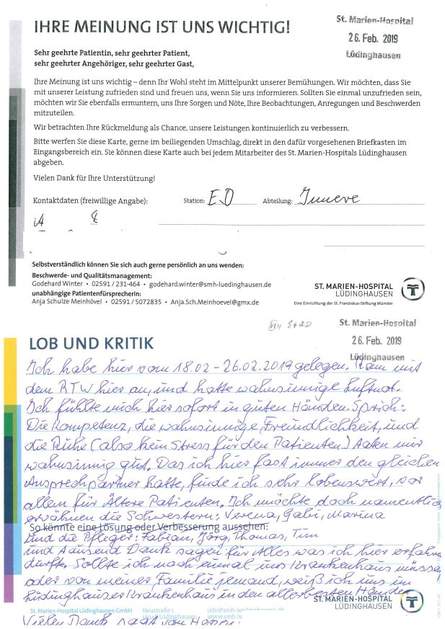 IHRE MEINUNG IST UNS WICHTIG!
St. Marien-Hospital
26. Feb. 2019
Lüdinghausen
Sehr geehrte Patientin, sehr geehrter Patient,
sehr geehrter Angehöriger, sehr geehrter Gast,
Ihre Meinung ist uns wichtig – denn Ihr Wohl steht im Mittelpunkt unserer Bemühungen. Wir möchten, dass Sie
mit unserer Leistung zufrieden sind und freuen uns, wenn Sie uns informieren. Sollten Sie einmal unzufrieden sein,
möchten wir Sie ebenfalls ermuntern, uns Ihre Sorgen und Nöte, Ihre Beobachtungen, Anregungen und Beschwerden
mitzuteilen.
Wir betrachten Ihre Rückmeldung als Chance, unsere Leistungen kontinuierlich zu verbessern.
Bitte werfen Sie diese Karte, gerne im beiliegenden Umschlag, direkt in den dafür vorgesehenen Briefkasten im
Eingangsbereich ein. Sie können diese Karte auch bei jedem Mitarbeiter des St. Marien-Hospitals Lüdinghausen
abgeben.
Vielen Dank für Ihre Unterstützung!
Kontaktdaten (freiwillige Angabe): Station: ED Abteilung: Innere
Selbstverständlich können Sie sich auch gerne persönlich an uns wenden:
Beschwerde- und Qualitätsmanagement:
Godehard Winter • 02591 / 231-464 • godehard.winter@smh-luedinghausen.de
unabhängige Patientenfürsprecherin:
Anja Schulze Meinhövel • 02591 / 5072835 • Anja.Sch.Meinhoevel@gmx.de
ST. MARIEN-HOSPITAL
LÜDINGHAUSEN
Eine Einrichtung der St. Franziskus-Stiftung Münster
St. Marien-Hospital
26. Feb. 2019
Lüdinghausen
LOB UND KRITIK
Ich habe hier vom 18.02 - 26.02.2019 gelegen. Kam mit
dem RTW hier an, und hatte wahnsinnige Luftnot.
Ich fühlte mich hier sofort in guten Händen. Sprich:
Die Kompetenz, die wahnsinnige Freundlichkeit, und
die Ruhe (also kein Stress für den Patienten) taten mir
wahnsinnig gut. Das ich hier fast immer den gleichen
Ansprechpartner hatte, finde ich sehr lobenswert, vor
allem für Ältere Patienten. Ich möchte doch namentlich
erwähnen die Schwestern: Verena, Gabi, Marina
So könnte eine Lösung oder Verbesserung aussehen:
und die Pfleger: Fabian, Jörg, Thomas, Tim
und Tausend Dank sagen für Alles was ich hier erfahren
durfte. Sollte ich noch einmal ins Krankenhaus müssen
oder von meiner Familie jemand, weiß ich uns im
Lüdinghauser Krankenhaus in den allerbesten Händen
St. Marien-Hospital Lüdinghausen GmbH
ST. MARIEN-HOSPITAL
LÜDINGHAUSEN
Vielen Dank sagt von